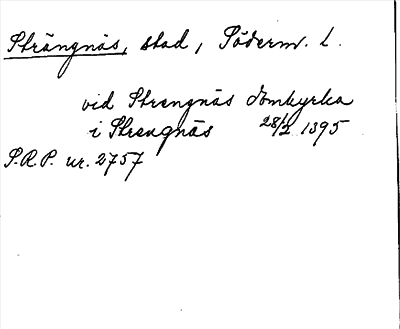 Strängnäs, stad, Söderm. L.
vid Strengnäs domkyrka
i Strengnäs 28/2 1395
S.R.P. nr. 2757